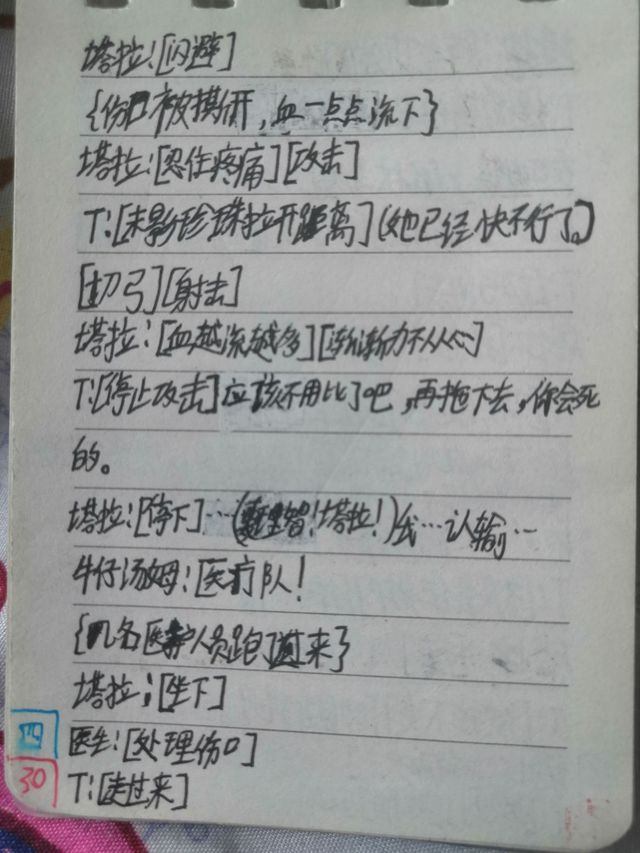 塔拉:[闪避]
{伤口被撕开,血一点点流下}
塔拉:[忍住疼痛][攻击]
T:[末影珍珠拉开距离](她已经快不行了。)
[切弓][射击]
塔拉:[血越流越多][渐渐力不从心]
T:[停止攻击]应该不用比了吧,再拖下去,你会死
的。
塔拉:[停下]…(理智!塔拉!)我…认输…
牛仔汤姆:医疗队!
{几名医护人员跑了过来}
塔拉:[坐下]
四
医生:[处理伤口]
30
T:[走过来]